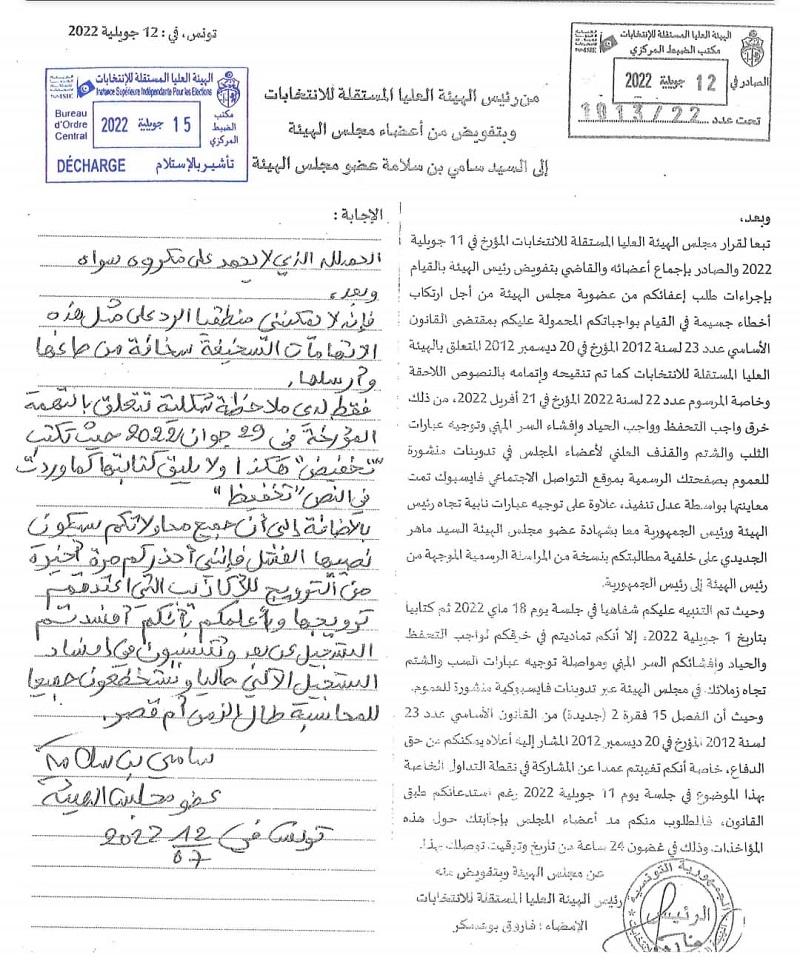 تونس، في : 12 جويلية 2022
الهيئة العليا المستقلة للانتخابات
مكتب الضبط المركزي
الصادر في 12 جويلية 2022
تحت عدد 1013/22
الهيئة العليا المستقلة للإنتخابات
Instance Supérieure Indépendante Pour les Elections
Bureau d'Ordre Central
15 جويلية 2022
مكتب الضبط المركزي
DÉCHARGE تأشير بالإستلام
من رئيس الهيئة العليا المستقلة للانتخابات
وبتفويض من أعضاء مجلس الهيئة
إلى السيد سامي بن سلامة عضو مجلس الهيئة
وبعد،
تبعا لقرار مجلس الهيئة العليا المستقلة للانتخابات المؤرخ في 11 جويلية
2022 والصادر بإجماع أعضائه والقاضي بتفويض رئيس الهيئة بالقيام
بإجراءات طلب إعفائكم من عضوية مجلس الهيئة من أجل ارتكاب
أخطاء جسيمة في القيام بواجباتكم المحمولة عليكم بمقتضى القانون
الأساسي عدد 23 لسنة 2012 المؤرخ في 20 ديسمبر 2012 المتعلق بالهيئة
العليا المستقلة للانتخابات كما تم تنقيحه وإتمامه بالنصوص اللاحقة
وخاصة المرسوم عدد 22 لسنة 2022 المؤرخ في 21 أفريل 2022، من ذلك
خرق واجب التحفظ وواجب الحياد وإفشاء السر المهني وتوجيه عبارات
الثلب والشتم والقذف العلني لأعضاء المجلس في تدوينات منشورة
للعموم بصفحتك الرسمية بموقع التواصل الاجتماعي فايسبوك تمت
معاينتها بواسطة عدل تنفيذ، علاوة على توجيه عبارات نابية تجاه رئيس
الهيئة ورئيس الجمهورية معا بشهادة عضو مجلس الهيئة السيد ماهر
الجديدي على خلفية مطالبتكم بنسخة من المراسلة الرسمية الموجهة من
رئيس الهيئة إلى رئيس الجمهورية.
وحيث تم التنبيه عليكم شفاهيا في جلسة يوم 18 ماي 2022 ثم كتابيا
بتاريخ 1 جويلية 2022، إلا أنكم تماديتم في خرقكم لواجب التحفظ
والحياد وافشائكم السر المهني ومواصلة توجيه عبارات السب والشتم
تجاه زملائك في مجلس الهيئة عبر تدوينات فايسبوكية منشورة للعموم.
وحيث أن الفصل 15 فقرة 2 (جديدة) من القانون الأساسي عدد 23
لسنة 2012 المؤرخ في 20 ديسمبر 2012 المشار إليه أعلاه يمكنكم من حق
الدفاع، خاصة أنكم تغيبتم عمدا عن المشاركة في نقطة التداول الخاصة
بهذا الموضوع في جلسة يوم 11 جويلية 2022 رغم استدعائكم طبق
القانون، فالمطلوب منكم مد أعضاء المجلس بإجابتك حول هذه
المؤاخذات وذلك في غضون 24 ساعة من تاريخ وتوقيت توصلك بهذا.
عن مجلس الهيئة وبتفويض منه
رئيس الهيئة العليا المستقلة للانتخابات
الإمضاء : فاروق بوعسكر
الجمهورية التونسية
الرئيس
الإجابة :
الحمد لله الذي لا يحمد على مكروه سواه
وبعد،
فإنه لا يمكنني منطقيا الرد على مثل هذه
الاتهامات السخيفة سخافة من صاغها
وأرسلها.
فقط لدي ملاحظة شكلية تتعلق بالتهمة
المؤرخة في 29 جوان 2022 حيث تكتب
"تخفيض" هكذا ولا يليق كتابتها كما وردت
في النص "تخفيظ"
بالاضافة إلى أن جميع محاولاتكم سيكون
نصيبها الفشل فإنني أحذركم مرة أخيرة
من الترويج للأكاذيب التي اعتدتم
ترويجها وبأعلمكم بأنكم أفسدتم
التسجيل عن بعد وتتسببون في إفساد
التسجيل الآلي حاليا وستخضعون جميعا
للمحاسبة طال الزمن أم قصر.
سامي بن سلامة
عضو مجلس الهيئة
تونس في 12/07 2022